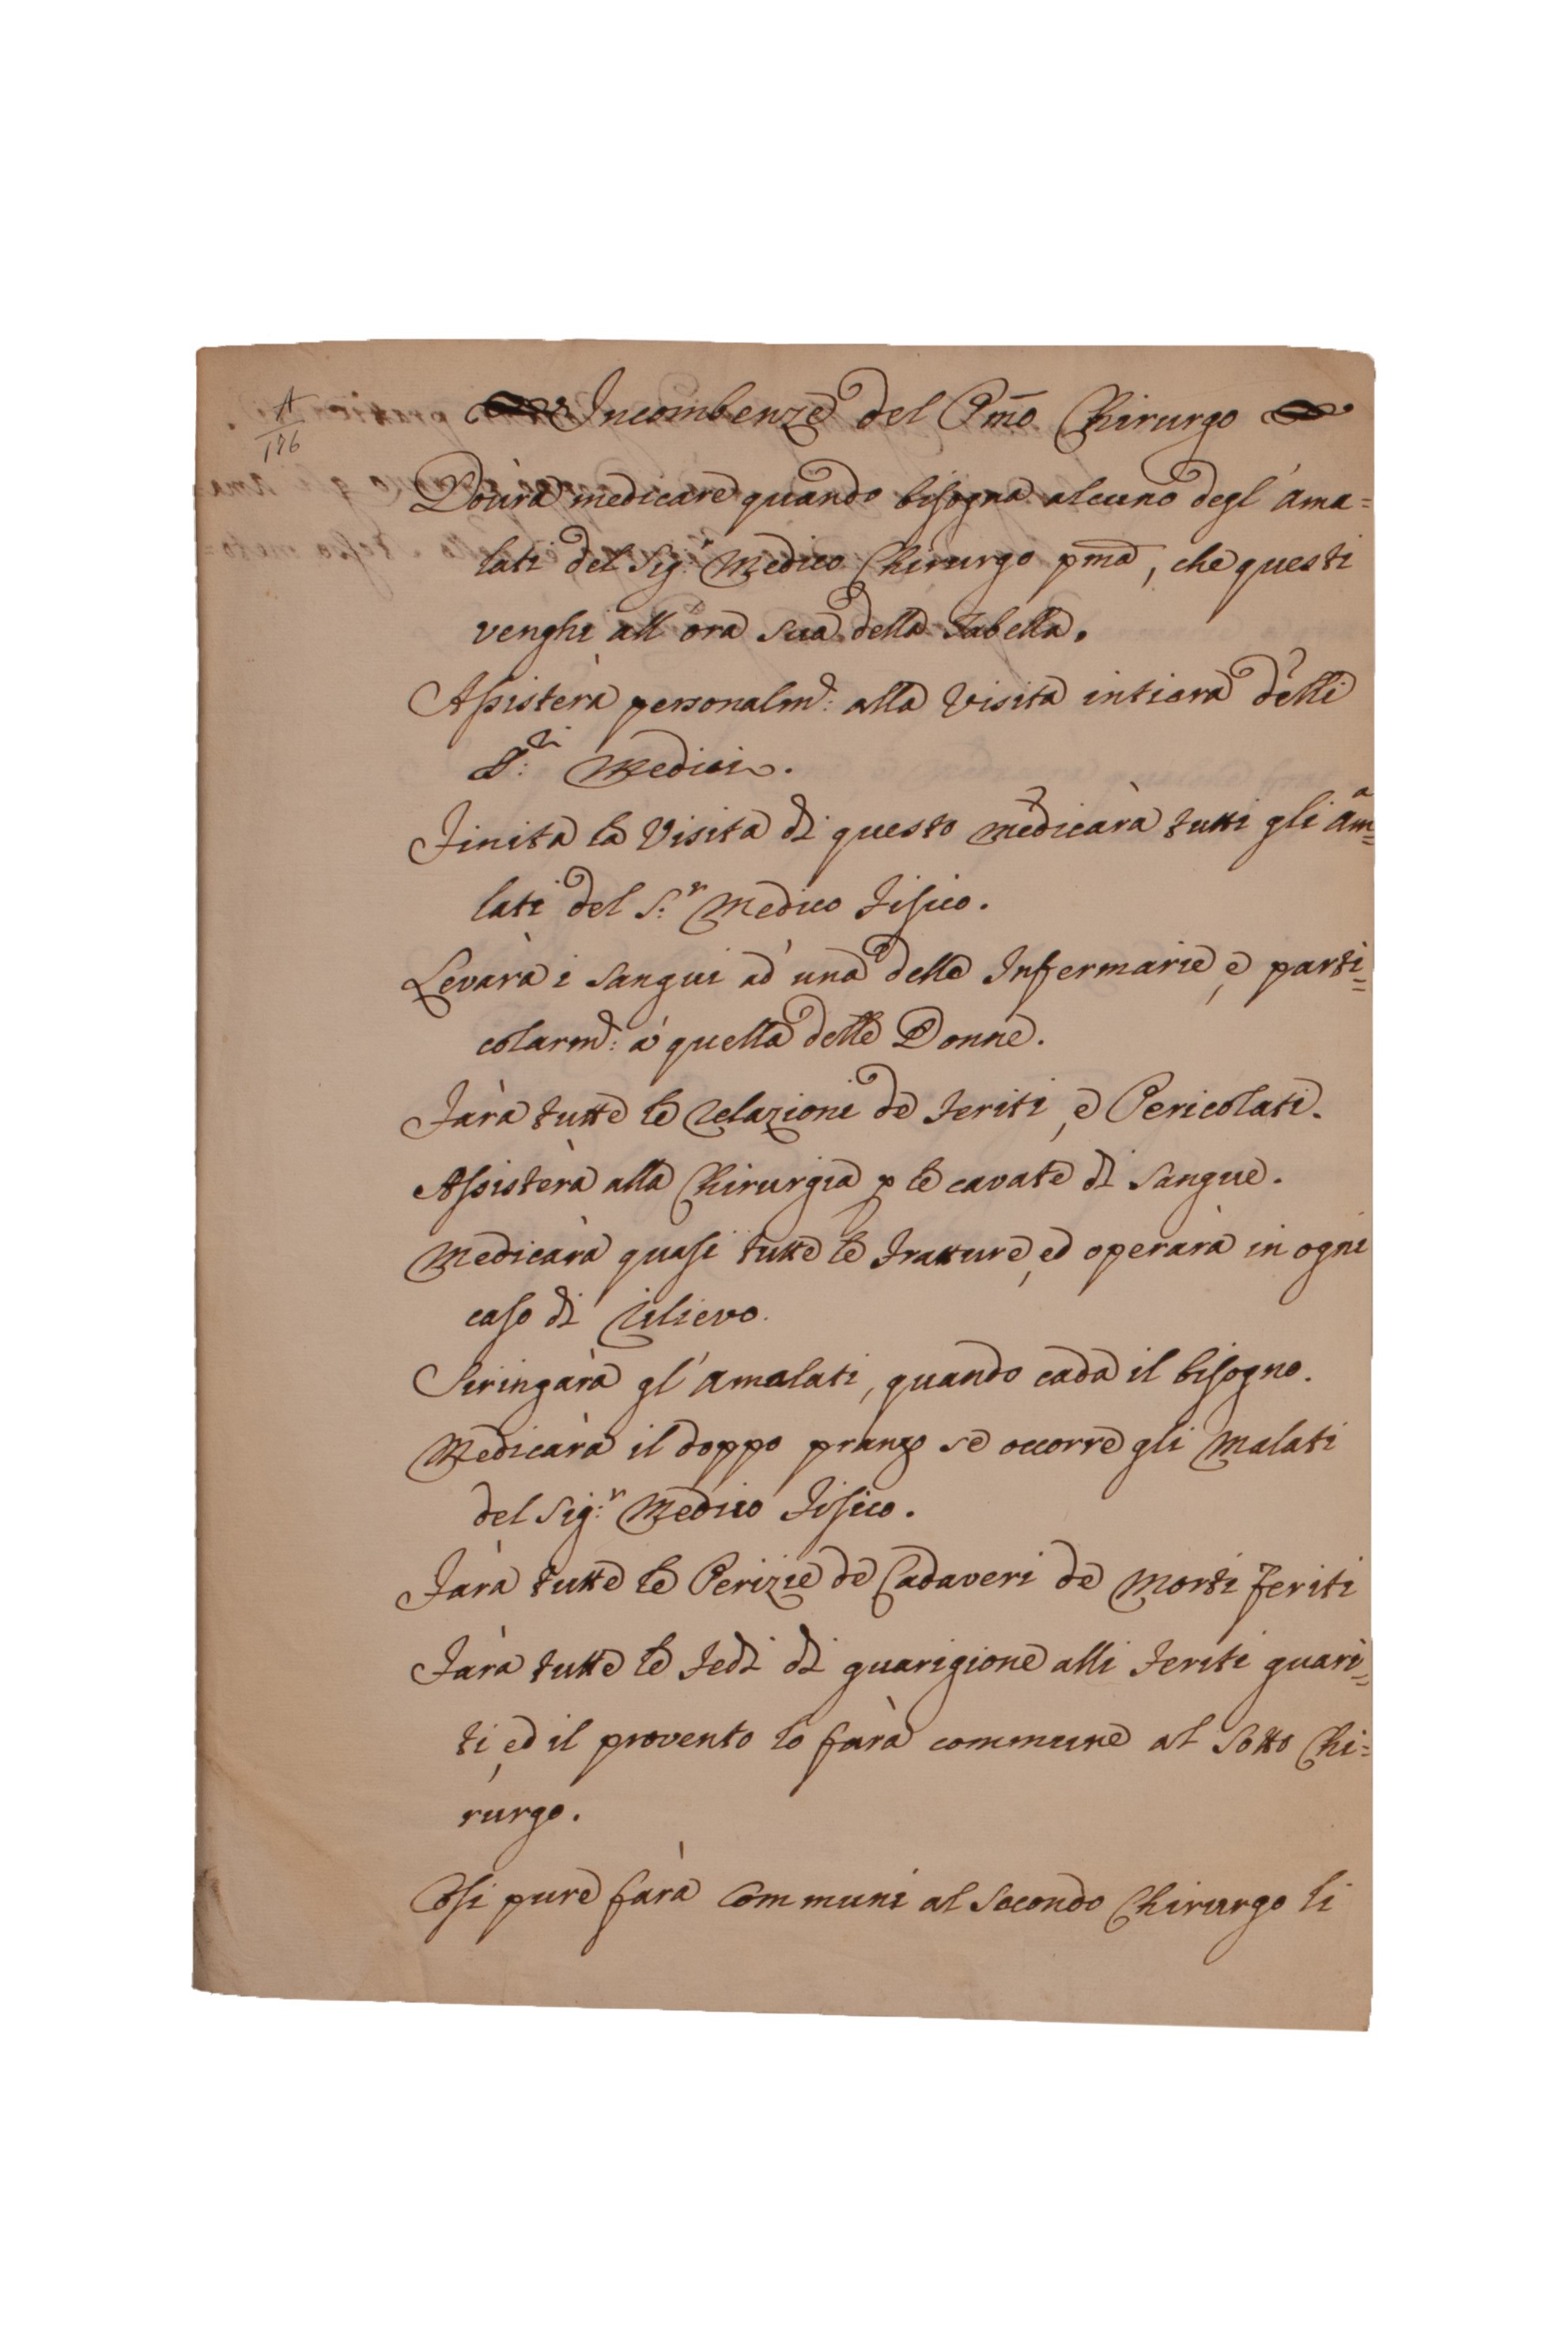 A
176
Incombenze del Pmo Chirurgo
Dourà medicare quando bisogna alcuno degl'ama=
lati del Sig:r Medico Chirurgo pma, che questi
venghi all'ora sua della Tabella.
Assisterà personalmte: alla Visita intiera delli
S:ri Medici.
Finita la Visita di questo medicarà tutti gli ama=
lati del S:r Medico Fisico.
Levarà i sangui ad una delle Infermarie, e parti=
colarmte: a quella delle Donne.
Farà tutte le relazioni de feriti, e Pericolati.
Assisterà alla Chirurgia p le cavate di sangue.
Medicarà quasi tutte le fratture, ed operarà in ogni
caso di rilievo.
Siringarà gl'amalati, quando cada il bisogno.
Medicarà il doppo pranzo se occorre gli Malati
del Sig:r Medico Fisico.
Farà tutte le Perizie de Cadaveri de morti feriti
Farà tutte le fedi di guarigione alli feriti guari=
ti, ed il provento lo farà commune al Sotto Chi=
rurgo.
Così pure farà communi al secondo Chirurgo li